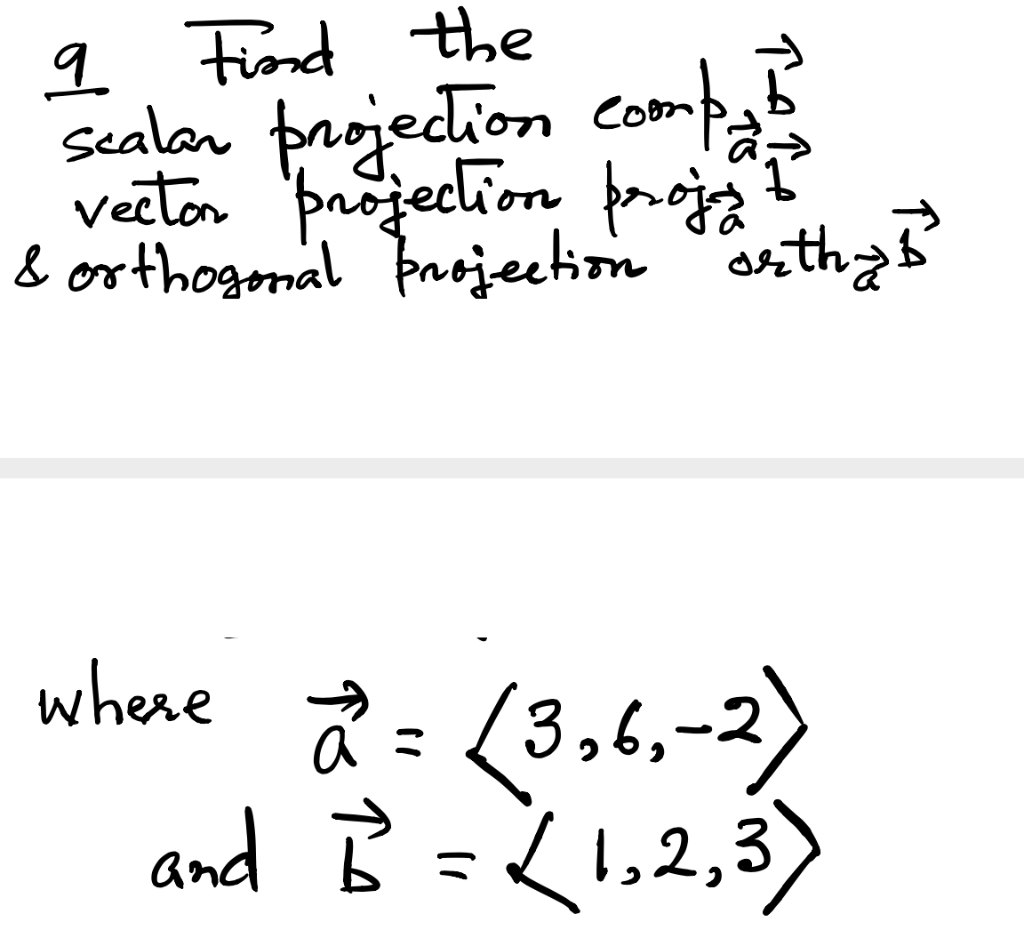 q Find the
scalar projection comp_a⃗ b⃗
vector projection proj_a⃗ b⃗
& orthogonal projection orth_a⃗ b⃗
where a⃗ = ⟨3, 6, -2⟩
and b⃗ = ⟨1, 2, 3⟩